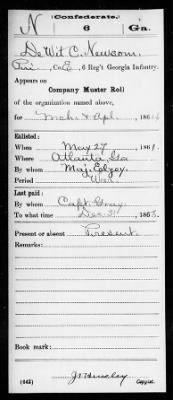 Confederate.
N 6 Ga.
De Wit C. Newsom
Pvt, Co. E, 6 Reg't Georgia Infantry.
Appears on
Company Muster Roll
of the organization named above,
for Mch & Apl, 1864
Enlisted:
When May 27, 1861.
Where Atlanta, Ga
By whom Maj. Eelzey
Period War
Last paid:
By whom Capt. Gray
To what time Dec 31, 1863.
Present or absent Present
Remarks:
Book mark:
(642)
Copyist.